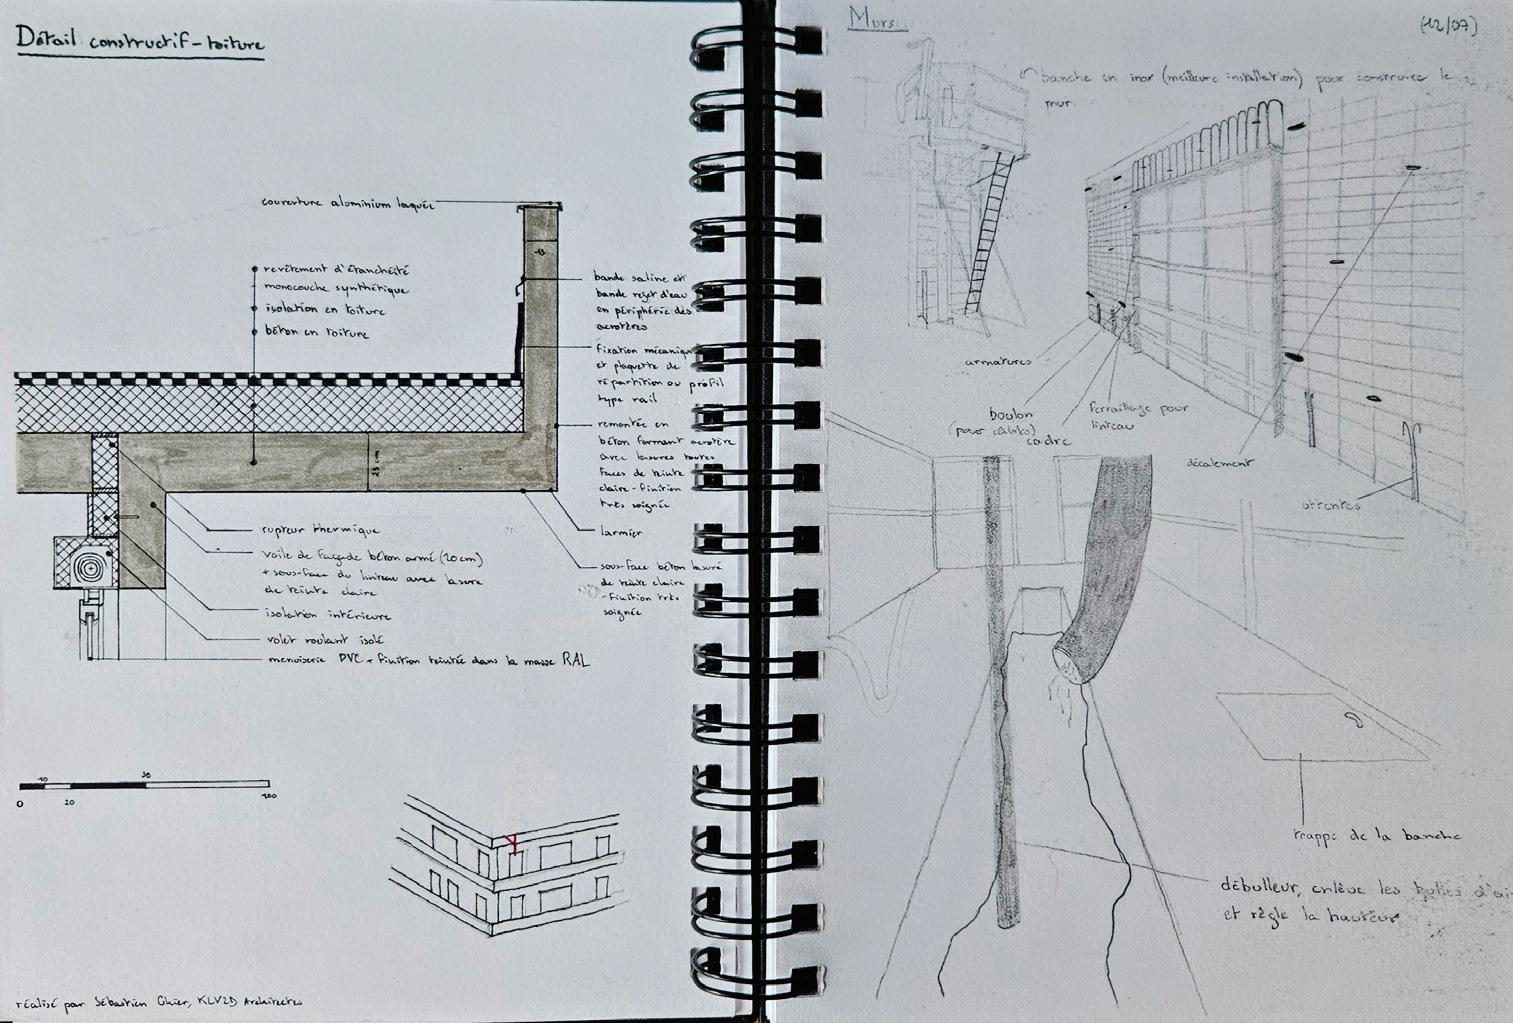 Détail constructif - toiture
couverture aluminium laquée
revêtement d'étanchéité
monocouche synthétique
isolation en toiture
béton en toiture
bande saline et
bande rejet d'eau
en périphérie des
acrotères
fixation mécanique
et plaquette de
répartition ou profil
type rail
remontée en
béton formant acrotère
avec lasures toutes
faces de teinte
claire - finition
très soignée
larmier
sous-face béton lasuré
de teinte claire
- finition très
soignée
15
25 cm
rupteur thermique
voile de façade béton armé (20 cm)
+ sous-face du linteau avec lasure
de teinte claire
isolation intérieure
volet roulant isolé
menuiserie PVC + finition teintée dans la masse RAL
0 10 20 50 100
réalisé par Sébastien, KLV2D Architectes
Murs
(12/07)
banche en inox (meilleure installation) pour construire le
mur
armatures
boulon
(pour câbles)
cadre
ferraillage pour
linteau
décalement
attentes
trappe de la banche
débulleur, enlève les bulles d'air
et règle la hauteur